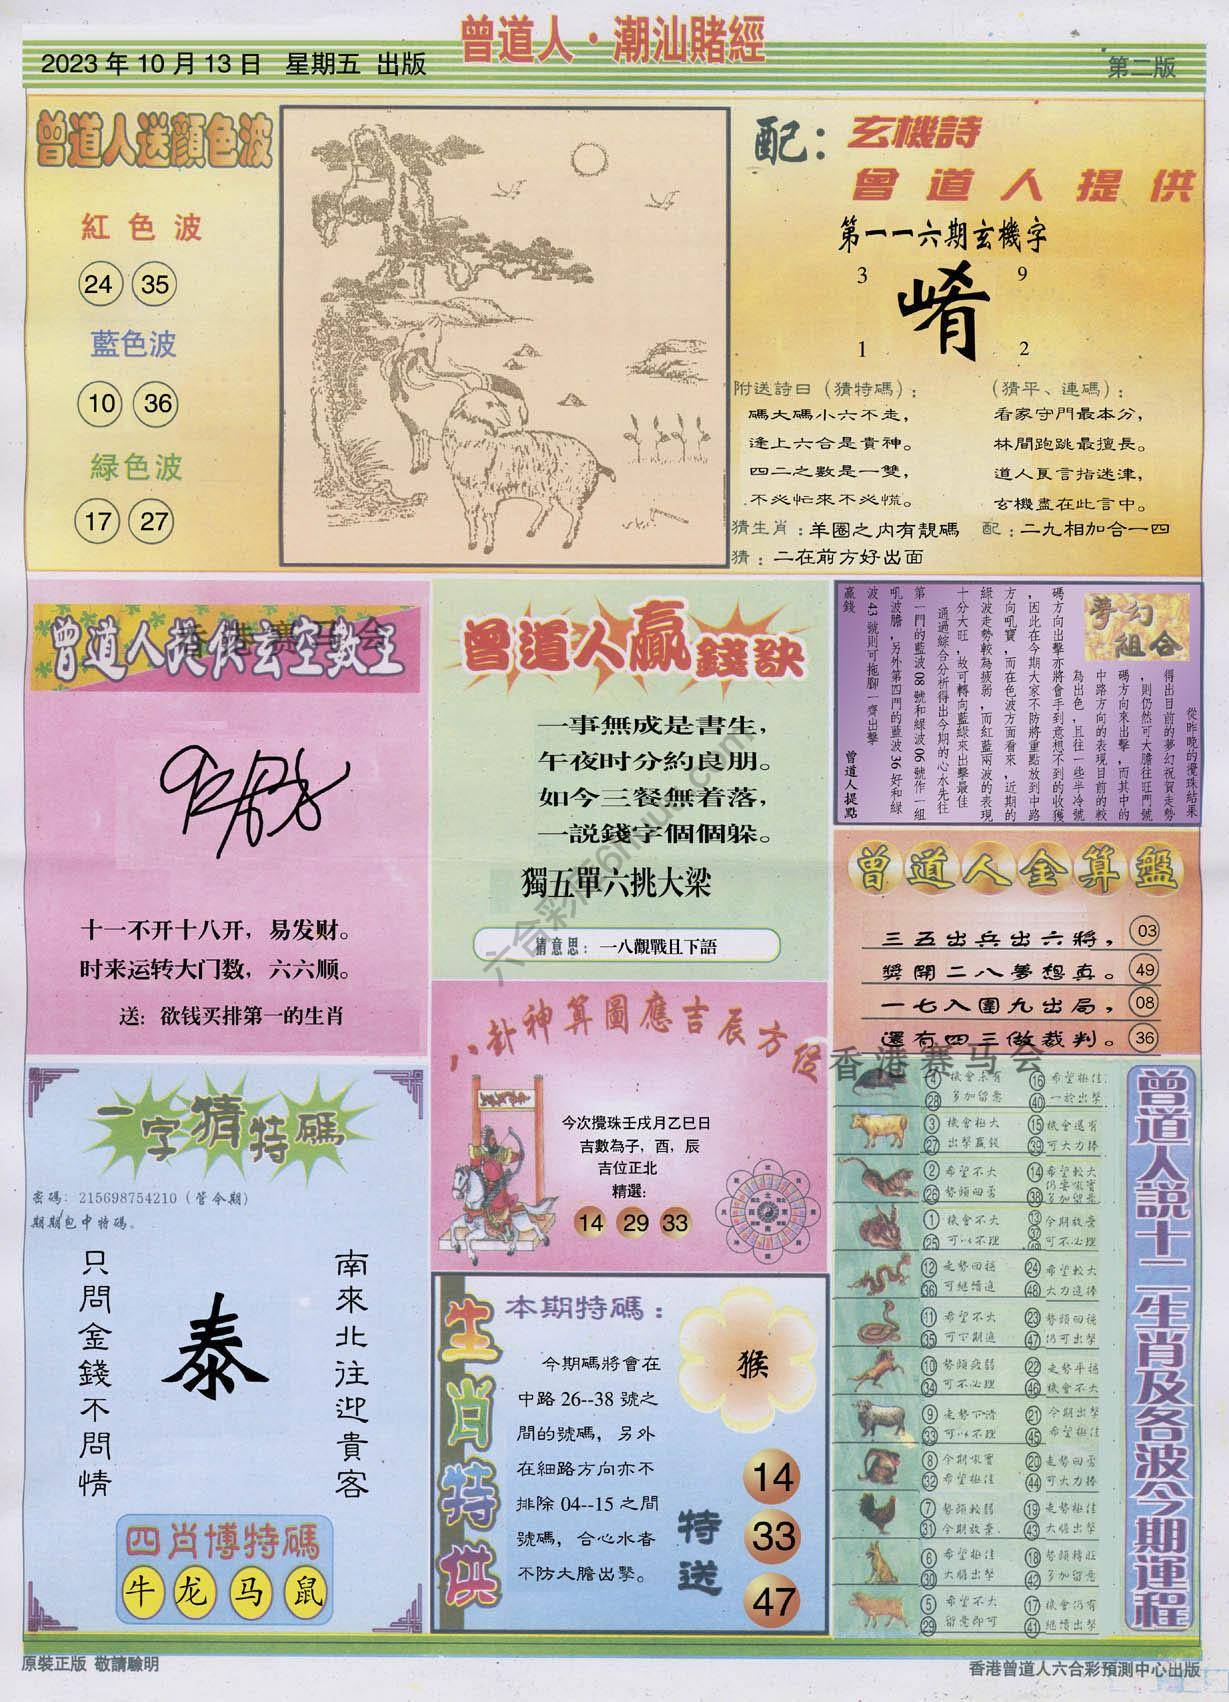 曾道人·潮汕賭經
2023年10月13日 星期五 出版
第二版
曾道人送顏色波
紅色波
24 35
藍色波
10 36
緑色波
17 27
配：玄機詩
曾道人提供
第一一六期玄機字
3 9
崤
1 2
附送詩日（猜特碼）：
碼大碼小六不走，
逢上六合是貴神。
四二之數是一雙，
不必忙來不必慌。
（猜平、連碼）：
看家守門最本分，
林間跑跳最擅長。
道人良言指迷津，
玄機盡在此言中。
猜生肖：羊圈之内有靚碼 配：二九相加合一四
猜：二在前方好出面
曾道人提供玄空數王
香港赛马会
十一不开十八开，易发财。
时来运转大门数，六六顺。
送：欲钱买排第一的生肖
曾道人贏錢訣
一事無成是書生，
午夜时分約良朋。
如今三餐無着落，
一説錢字個個躲。
獨五單六挑大梁
猜意思：一八觀戰且下語
夢幻組合
從昨晚的攪珠結果
得出目前的夢幻祝賀走勢
，則仍然可大膽往旺門號
碼方向來出擊，而其中的
中路方向的表現目前的較
為出色，且往一些半冷號
碼方向出擊亦將會手到意想不到的收獲
，因此在今期大家不防將重點放到中路
方向吼寶，而在色波方面看來，近期的
綠波走勢較為疲弱，而紅藍兩波的表現
十分大旺，故可轉向藍綠來出擊最佳
通過綜合分析得出今期的心水先往
第一門的藍波08號和綠波06號作一組
吼波膽，另外第四門的藍波36好和綠
波43號則可拖腳一齊出擊
贏錢
曾道人提點
曾道人金算盤
三五出兵出六將， 03
獎開二八夢想真。 49
一七入圍九出局， 08
還有四三做裁判。 36
香港赛马会
八卦神算圖應吉辰方位
今次攪珠壬戌月乙巳日
吉數為子，酉，辰
吉位正北
精選：
14 29 33
一字猜特碼
密碼：215698754210（管今期）
期期包中特碼。
南來北往迎貴客
泰
只問金錢不問情
四肖博特碼
牛 龙 马 鼠
生肖特供
本期特碼：
猴
今期碼將會在
中路26--38號之
間的號碼，另外
在細路方向亦不
排除04--15之間
號碼，合心水者
不防大膽出擊。
特送
14
33
47
曾道人説十二生肖及各波今期運程
4 機會未有 16 希望極佳
28 多加留意 40 一於出擊
3 機會極大 15 機會還有
27 出擊贏錢 39 可大力捧
2 希望不大 14 希望較大
26 勢頭回勇 38 多加留意
1 機會不大 13 今期放棄
25 可以不理 37 可不必理
12 走勢回穩 24 希望較大
36 可繼續追 48 大力追捧
11 希望不大 23 勢頭回穩
35 可下期追 47 仍可出擊
10 勢頭疲弱 22 走勢平穩
34 可不必理 46 機會不大
9 走勢下滑 21 今期出擊
33 可以不理 45 希望極佳
8 今期吼實 20 走勢回勇
32 希望極佳 44 可大力捧
7 勢頭較弱 19 走勢極佳
31 今期放棄 43 大膽出擊
6 希望極佳 18 勢頭轉旺
30 大膽出擊 42 多加留意
5 希望不大 17 機會仍有
29 留意即可 41 繼續出擊
原裝正版 敬請驗明
香港曾道人六合彩預測中心出版